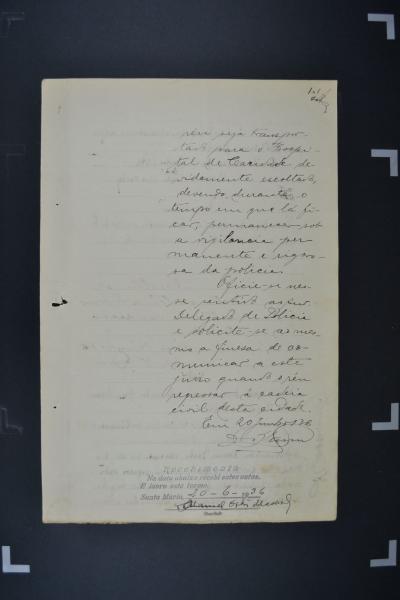 réu seja transpor-
tado para o Hospi-
tal de Caridade de-
vidamente escoltado,
devendo, durante o
tempo em que lá fi-
car, permanecer sob
a vigilancia per-
manente e rigoro-
sa da policia.
Oficie-se nes-
se sentido ao snr.
Delegado de Policia
e solicite-se ao mes-
mo a finesa de co-
municar a este
juizo quando o réu
regressar á cadeia
civil desta cidade.
Em 20 junho 936
Recebimento
Na data abaixo recebi estes autos.
E lavro este termo.
Santa Maria, 20-6-1936
Manoel
Escrivão